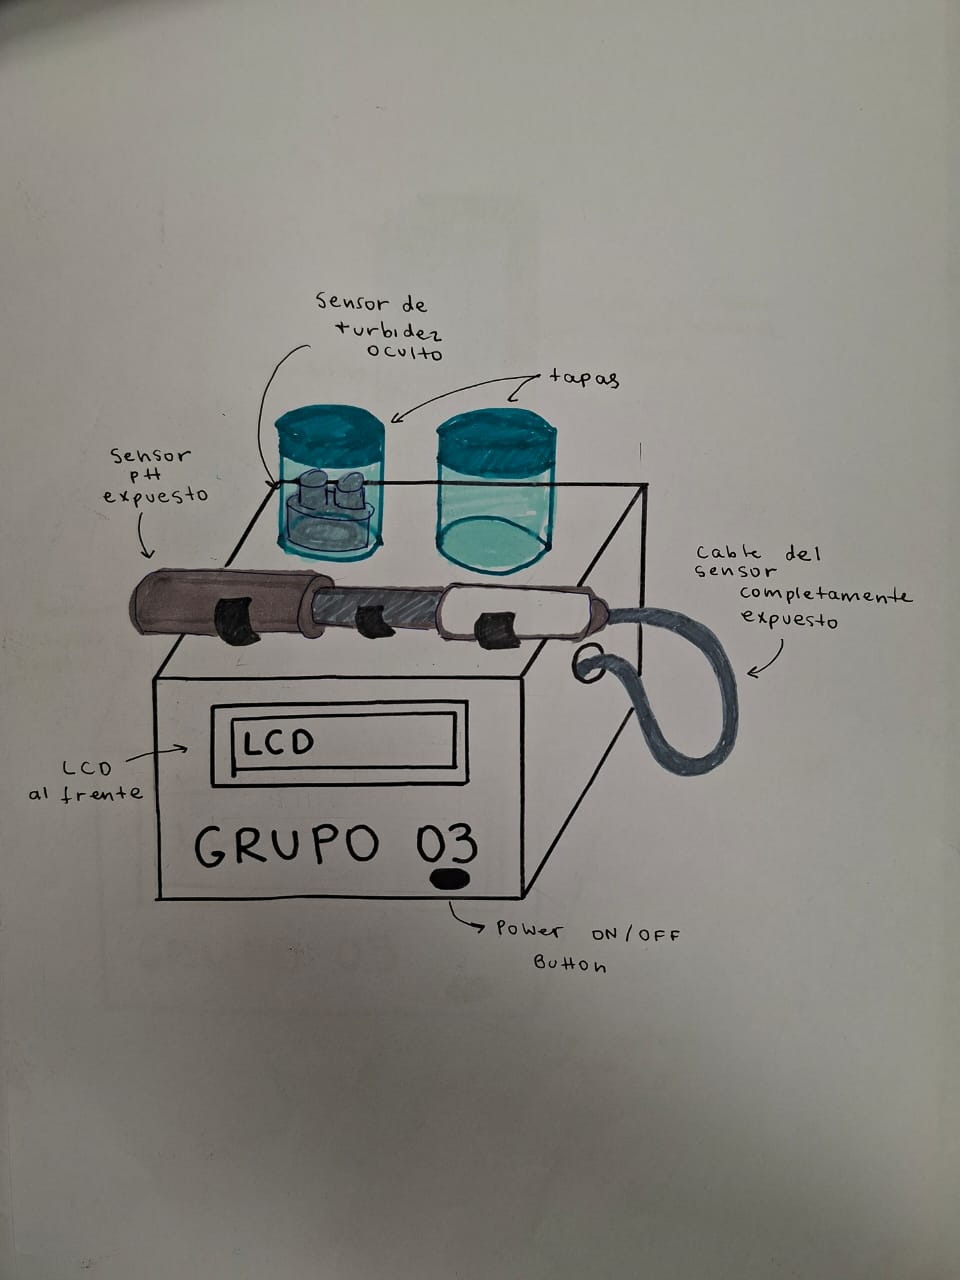 Sensor de
turbidez
oculto
tapas
Sensor
pH
expuesto
Cable del
sensor
completamente
expuesto
LCD
LCD
al frente
GRUPO 03
Power ON/OFF
Button